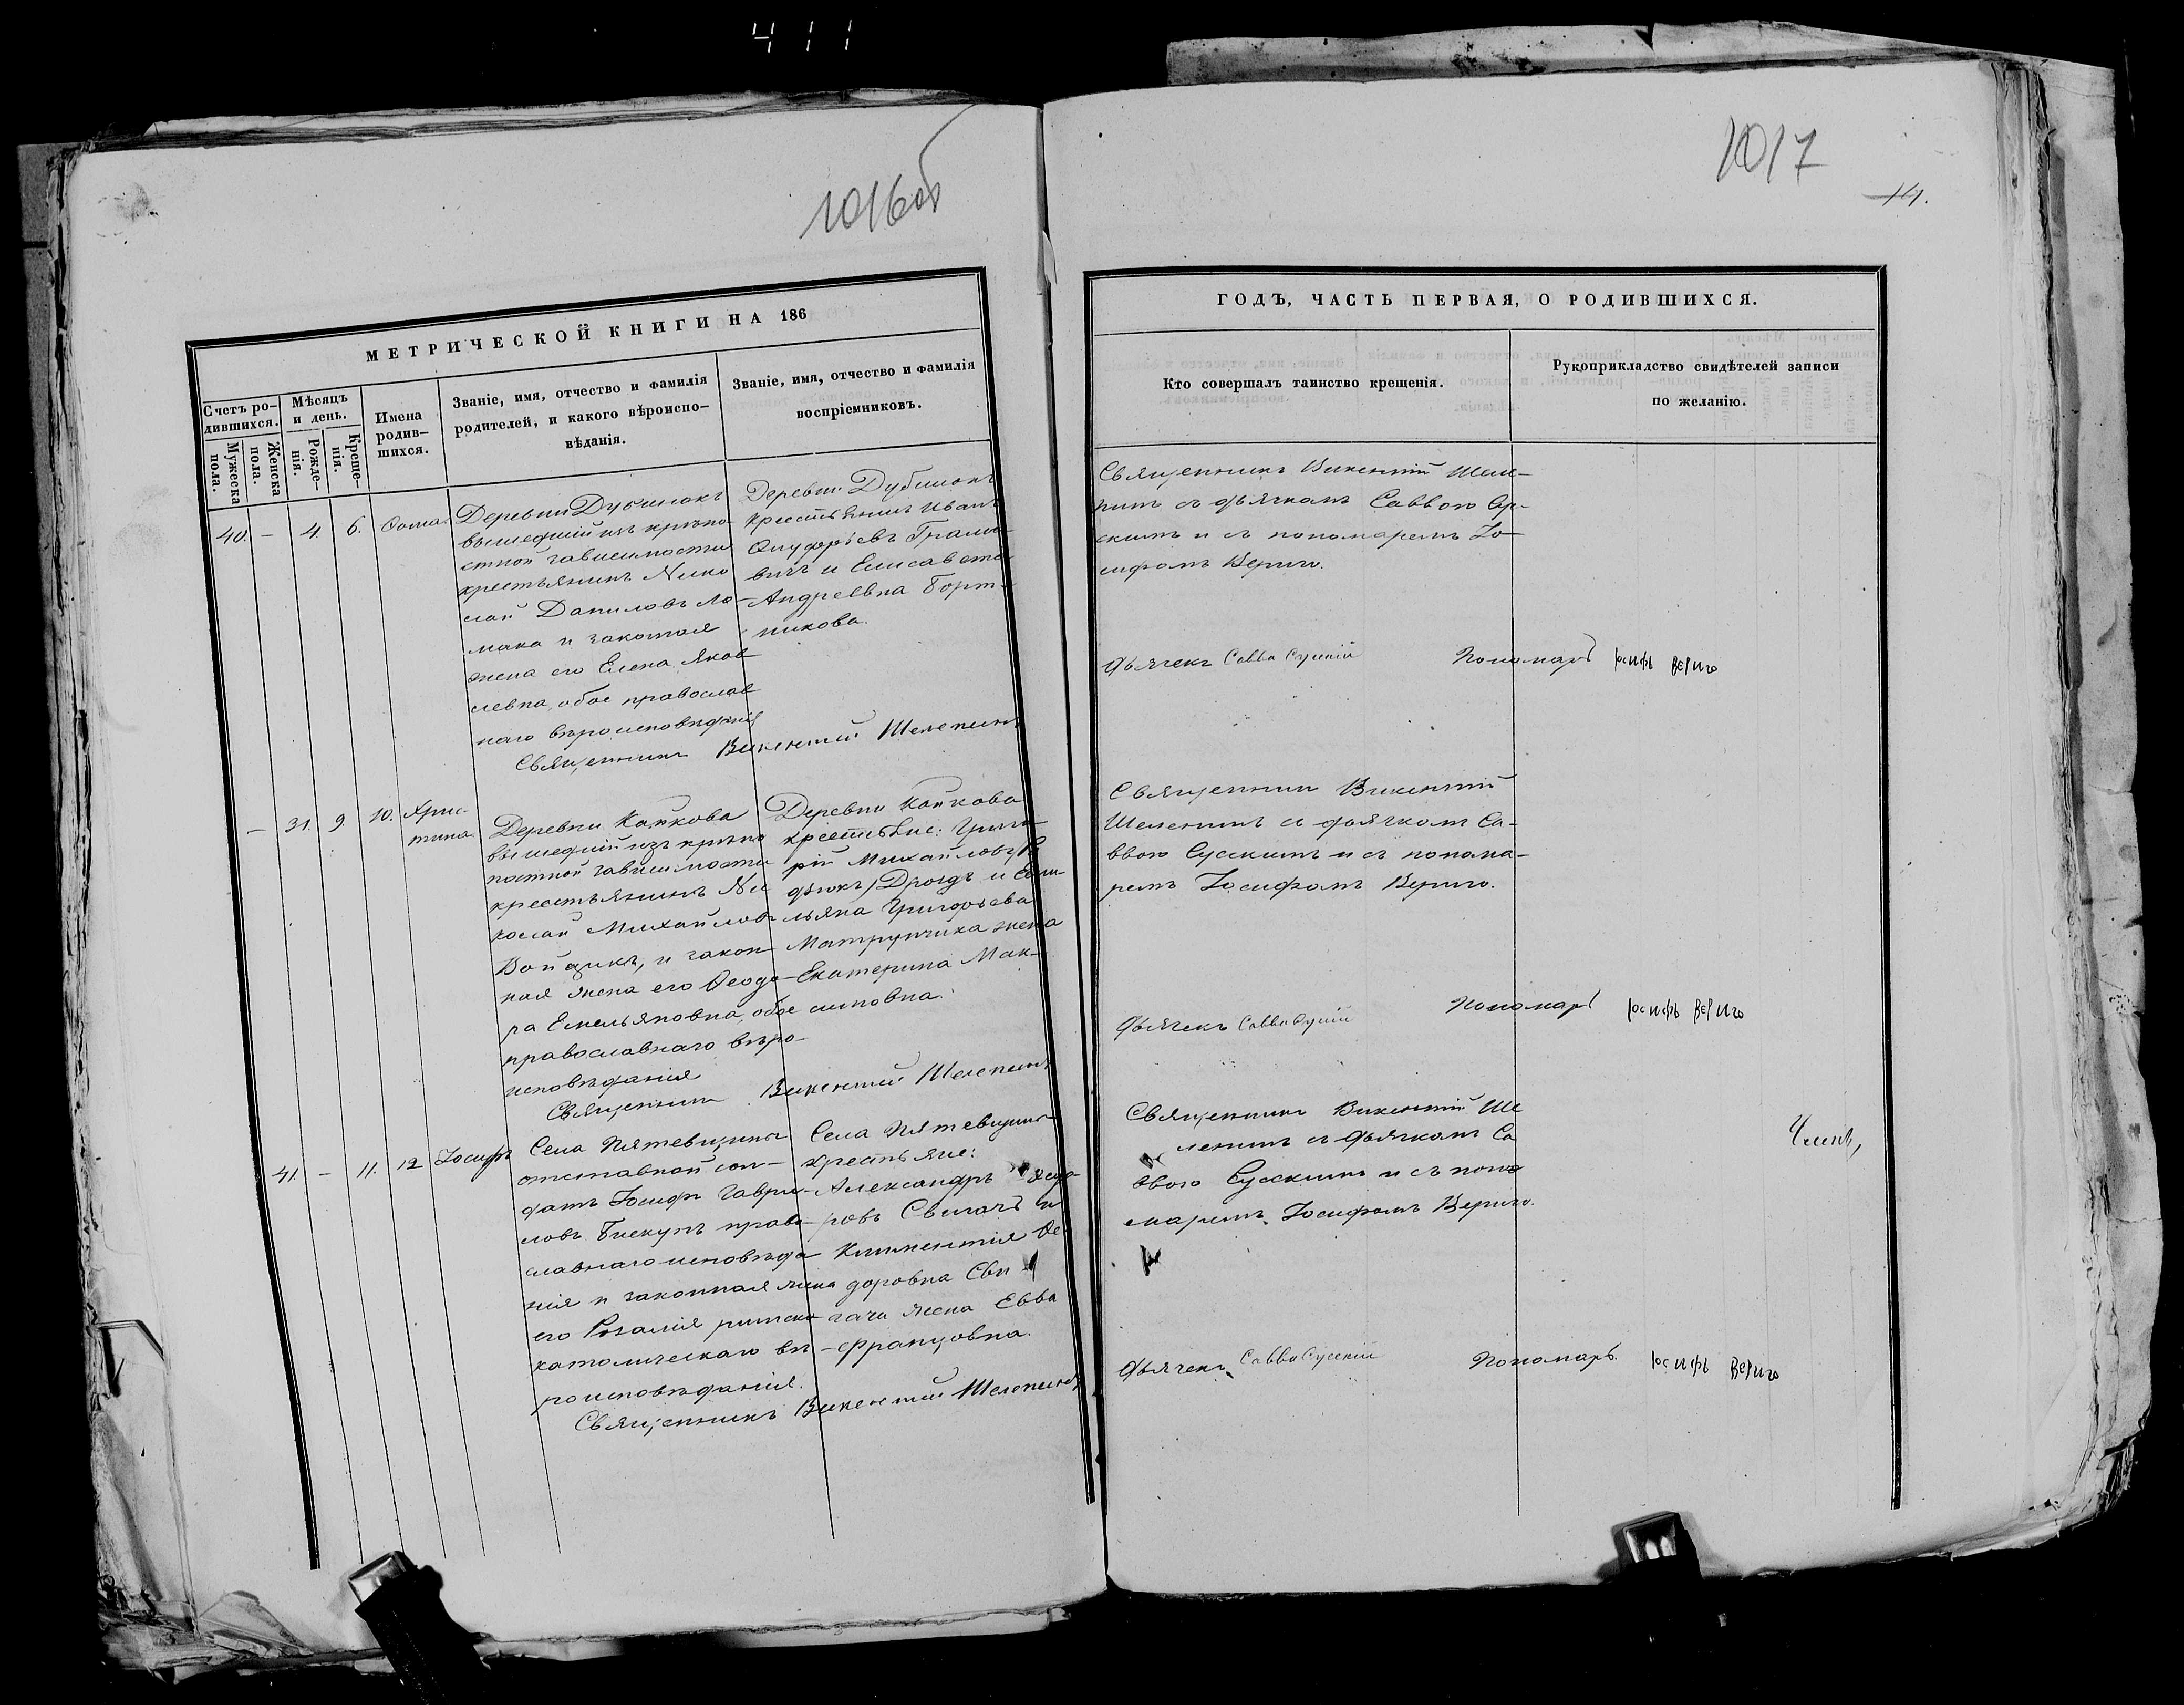 411
1016об
МЕТРИЧЕСКОЙ КНИГИ НА 186
Счетъ ро-
дившихся.
Мужеска
пола.
Женска
пола.
Мѣсяцъ
и день.
Рожде-
нія.
Креще-
нія.
Имена
родив-
шихся.
Званіе, имя, отчество и фамилія
родителей, и какого вѣроиспо-
вѣданія.
Званіе, имя, отчество и фамилія
воспріемниковъ.
40. - 4. 6. Ѳома
Деревни Дубинокъ
вышедшій изъ крѣпо
стной зависимости
крестьянинъ Нико
лай Даниловъ Ло-
мака и законная
жена его Елена Яков
левна, обое православ
наго вѣроисповѣданія
Деревни Дубинокъ
крестьянинъ Иванъ
Онуфріевъ
вичъ и Елисавета
Андреевна Борт-
никова.
Священникъ Викентій Шелепинъ
- 31. 9. 10. Хрис-
тина
Деревни Койкова
вышедшій изъ крѣпо
постной зависимости
крестьянинъ Ни
колай Михайловъ
Войдикъ, и закон-
ная жена его Ѳеодо-
ра Емельяновна, обое
православнаго вѣро-
исповѣданія
Деревни Койкова
крестьяне: Григо
рій Михайловъ
Дроздъ и Еми-
льяна Григорьева
Матрунчика жена
Екатерина Мак-
симовна.
Священникъ Викентій Шелепинъ
41. - 11. 12 Іосифъ
Села Пятевщины
отставной сол-
датъ Іосифъ Гаври-
ловъ Бискупъ право-
славнаго исповѣда
нія и законная жена
его Розалія римско
католическаго вѣ-
роисповѣданія.
Села Пятевщины
крестьяне:
Александръ Ѳедо
ровъ Свигачъ и
Климентія Ѳе
доровна Сви
гача жена Евва
Францовна.
Священникъ Викентій Шелепинъ
1017
14.
ГОДЪ, ЧАСТЬ ПЕРВАЯ, О РОДИВШИХСЯ.
Кто совершалъ таинство крещенія.
Рукоприкладство свидѣтелей записи
по желанію.
Священникъ Викентій Шеле-
пинъ съ дьячкомъ Саввою Су-
скимъ и съ пономаремъ Іо-
сифомъ Вериго.
Дьячекъ Савва Сускій Пономарь Іосифъ Вериго
Священникъ Викентій
Шелепинъ съ дьячкомъ Са-
ввою Сускимъ и съ понома-
ремъ Іосифомъ Вериго.
Дьячекъ Савва Сускій Пономарь Іосифъ Вериго
Священникъ Викентій Ше
лепинъ съ дьячкомъ Са
ввою Сускимъ и съ поно
маремъ Іосифомъ Вериго.
Дьячекъ Савва Сускій Пономарь Іосифъ Вериго